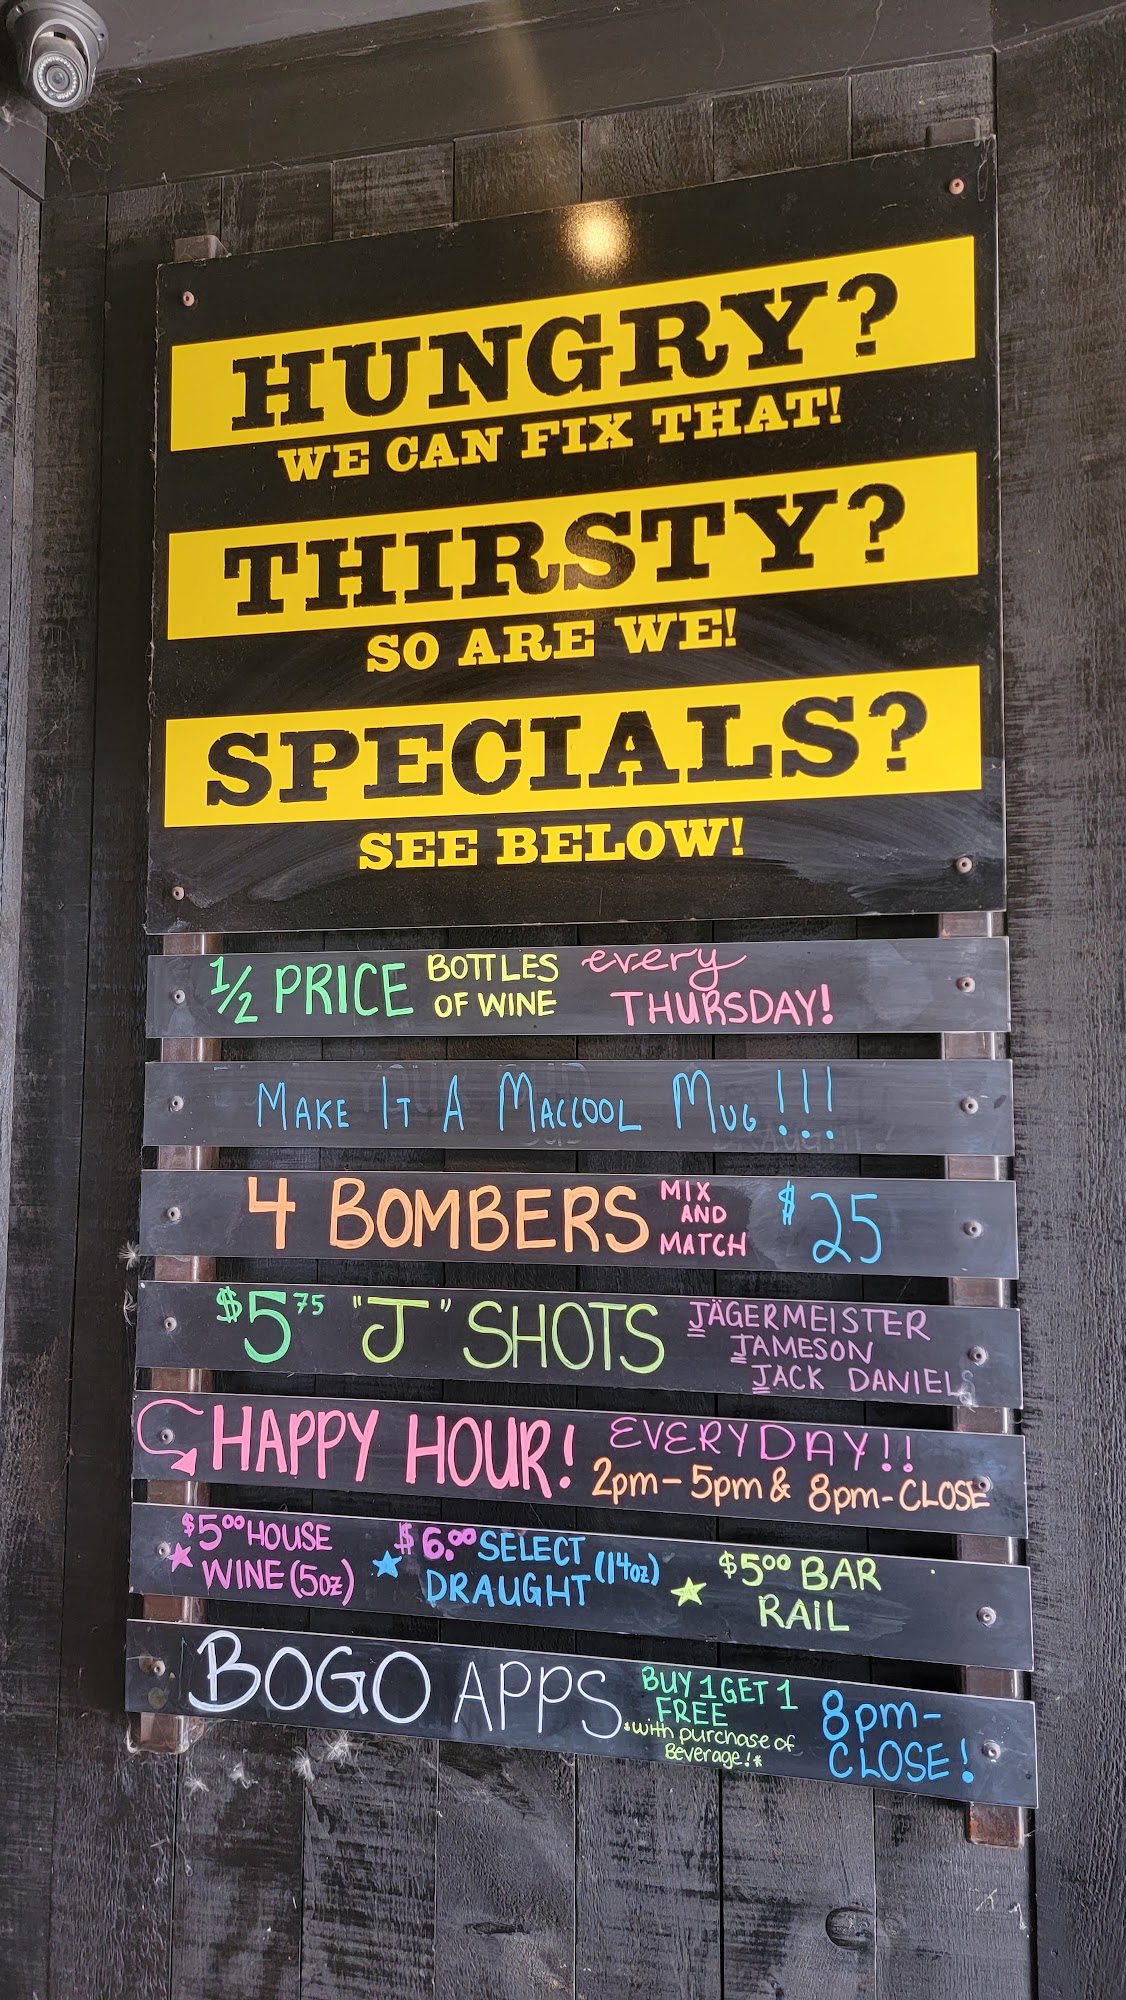 HUNGRY?
WE CAN FIX THAT!
THIRSTY?
SO ARE WE!
SPECIALS?
SEE BELOW!
1/2 PRICE BOTTLES OF WINE every THURSDAY!
MAKE IT A MACCOOL MUG!!!
4 BOMBERS MIX AND MATCH $25
$5.75 "J" SHOTS JÄGERMEISTER JAMESON JACK DANIELS
HAPPY HOUR! EVERYDAY!! 2pm-5pm & 8pm-CLOSE
$5.00 HOUSE WINE (5oz) $6.00 SELECT DRAUGHT (14oz) $5.00 BAR RAIL
BOGO APPS BUY 1 GET 1 FREE *with purchase of Beverage!* 8pm-CLOSE!